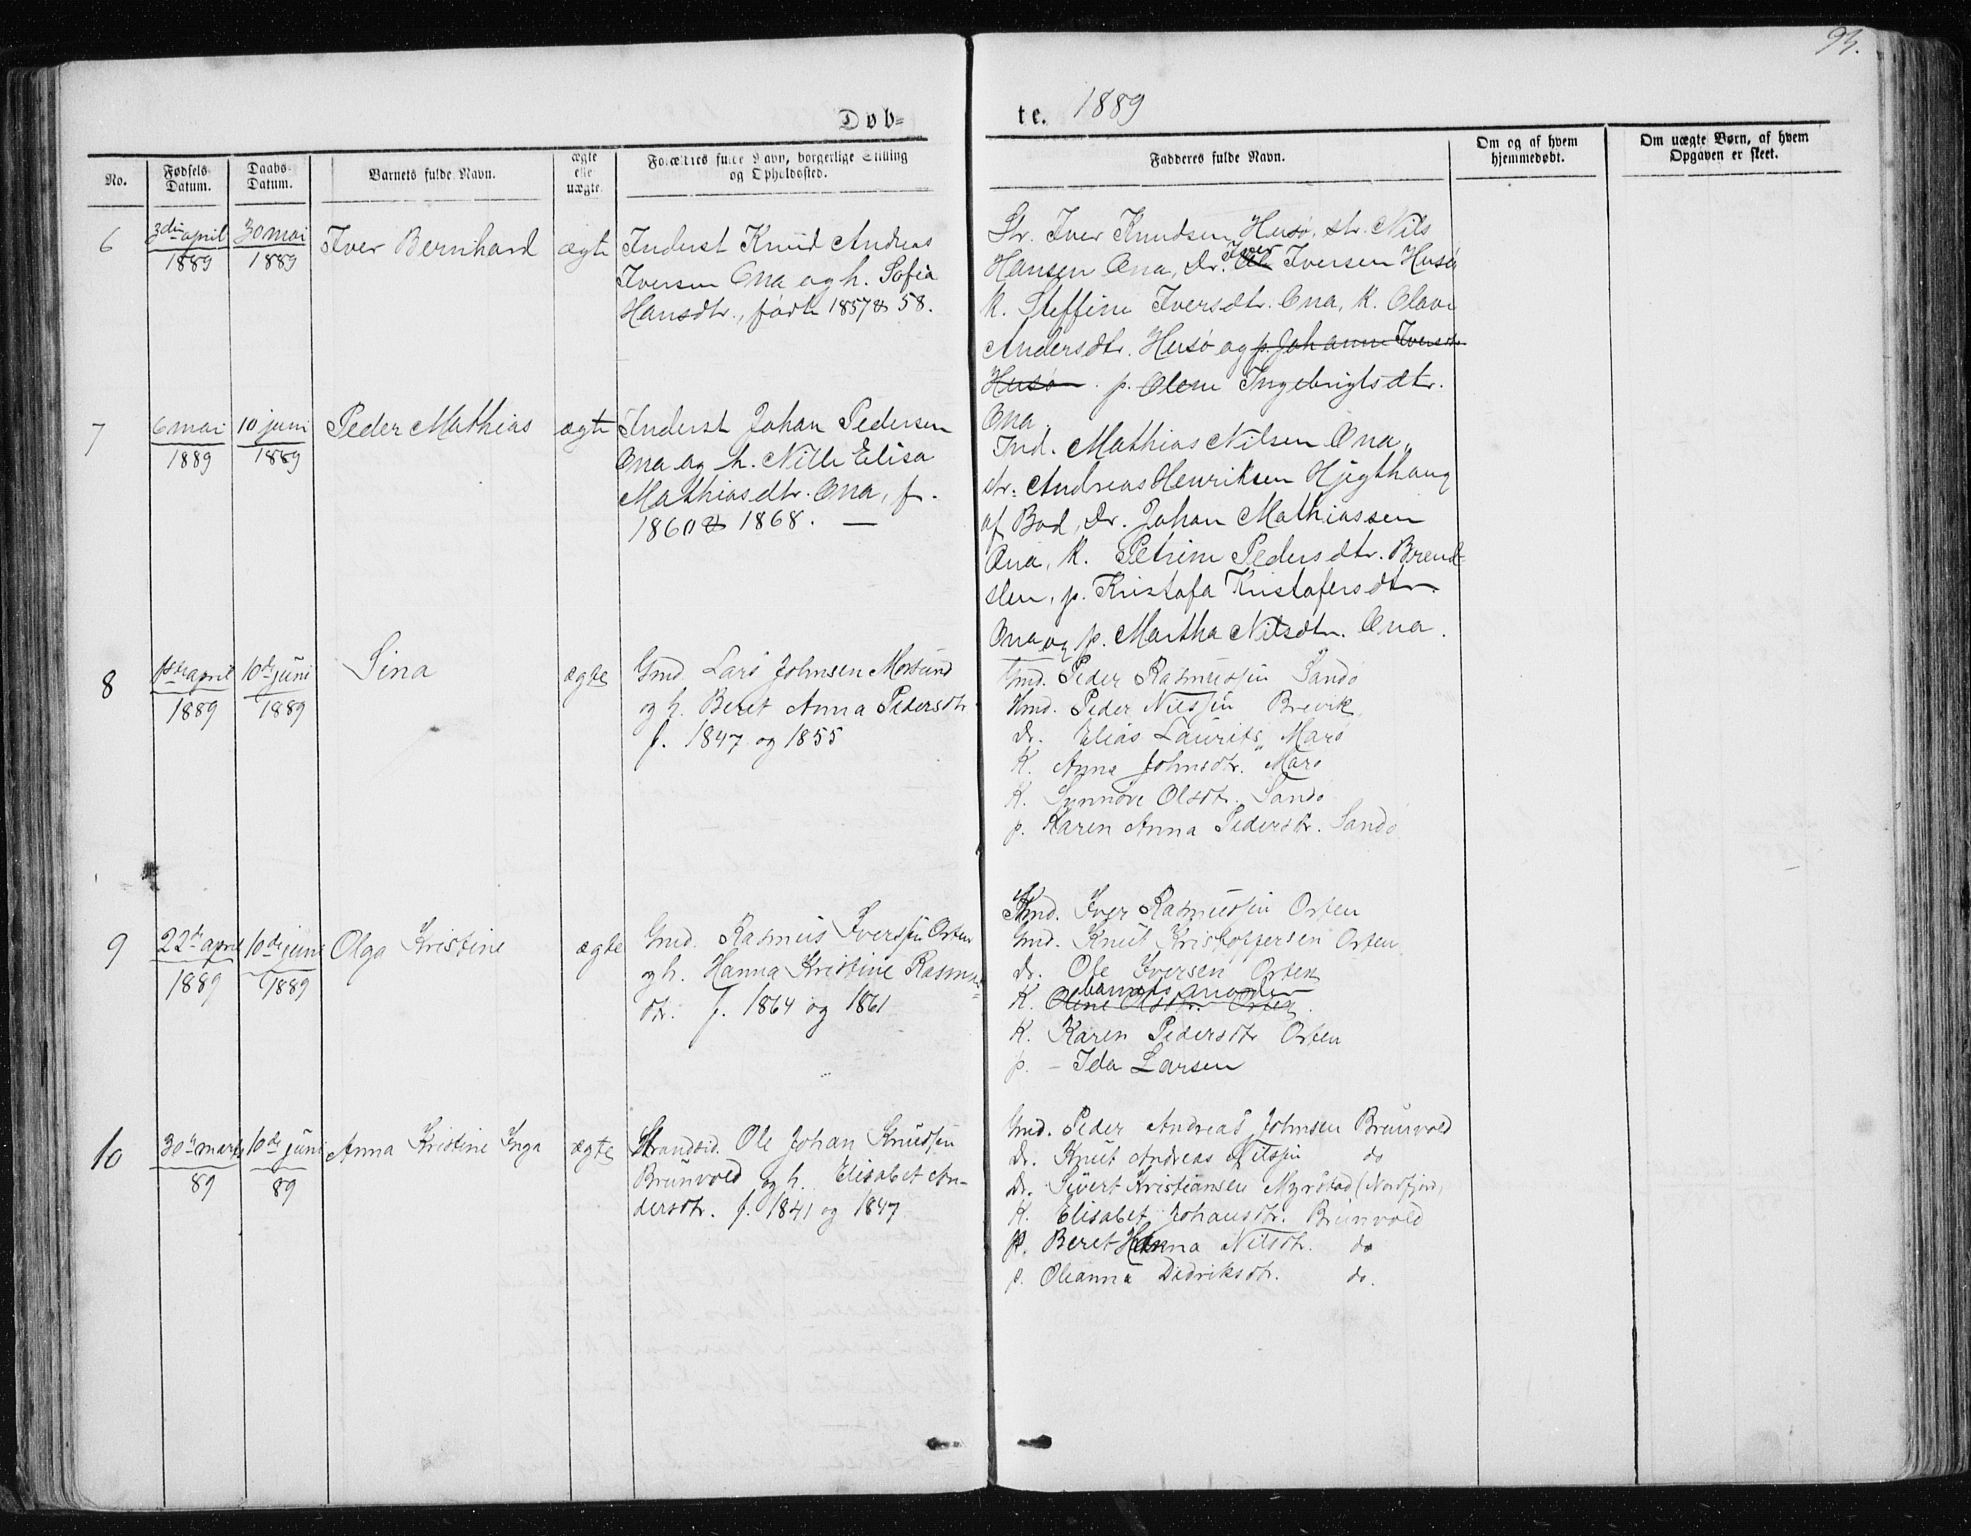 93.
Døb-
te. 1889
No.
Fødsels
Datum.
Daabs-
Datum.
Barnets fulde Navn.
ægte
elle
uægte.
Forældres fulde Navn, borgerlige Stilling
og Opholdssted.
Faddernes fulde Navn.
Om og af hvem
hjemmedøbt.
Om uægte Børn, af hvem
Opgaven er skeet.
6
3die april
1889
30 mai
1889
Iver Bernhard
ægte
Inderst Knud Andreas
Iversen Ona og h. Sofia
Hansdtr., født 1857 & 58.
Str. Iver Knudsen Husø, str. Nils
Hansen Ona, Dr. Iver Iversen Husø
K. Steffine Iversdtr. Ona, K. Olave
Andersdtr. Husø og p. Johanne Iversdtr
Husø. p. Olene Ingebrigtsdtr.
Ona.
7
6 mai
1889
10 juni
1889
Peder Mathias
ægte
Inderst Johan Pedersen
Ona og h. Nille Elisa
Mathiasdtr. Ona, f.
1860 & 1868. —
Ind. Mathias Nilsen Ona,
str. Andreas Henriksen Hjerthaug
af Bod, Dr. Johan Mathiassen
Ona, K. Petrine Pedersdtr. Brend-
slen, p. Kristofa Kristofersdtr.
Ona og p. Martha Nilsdtr. Ona.
8
1ste april
1889
10de juni
1889
Sina
ægte
Gmd. Lars Johnsen Morsund
og h. Beret Anna Pedersdtr
f. 1847 og 1855
Gmd. Peder Rasmussen Sandø
Hmd. Peder Nilssen Brevik
Dr. Elias Laurits Marø
K. Anne Johnsdtr. Marø
K. Synnøve Olsdtr. Sandø
p. Karen Anna Pedersdtr. Sandø
9
22de april
1889
10de juni
1889
Olga Kristine
ægte
Gmd. Rasmus Iverssen Orten
og h. Hanna Kristine Rasmus-
dtr. f. 1864 og 1861
Kmd. Iver Rasmussen Orten
Gmd. Knut Kristoffersen Orten
Dr. Ole Iversen Orten
barnets moder
K. Oline Olsdtr. Orten
K. Karen Pedersdtr Orten
p. – Ida Larsen
10
30te marts
89
10de juni
89
Anna Kristine Inga
ægte
Strandsid. Ole Johan Knudsen
Brunvold og h. Elisabet An-
dersdtr. f. 1841 og 1847
Gmd. Peder Andreas Johnsen Brunvold
Dr. Knut Andreas Nilssen do
Dr. Sivert Kristiansen Myrstad (Nordfjord)
K. Elisabet Johansdtr. Brunvold
p. Beret Hanna Nilsdtr. do
p. Oleanna Didriksdtr. do.